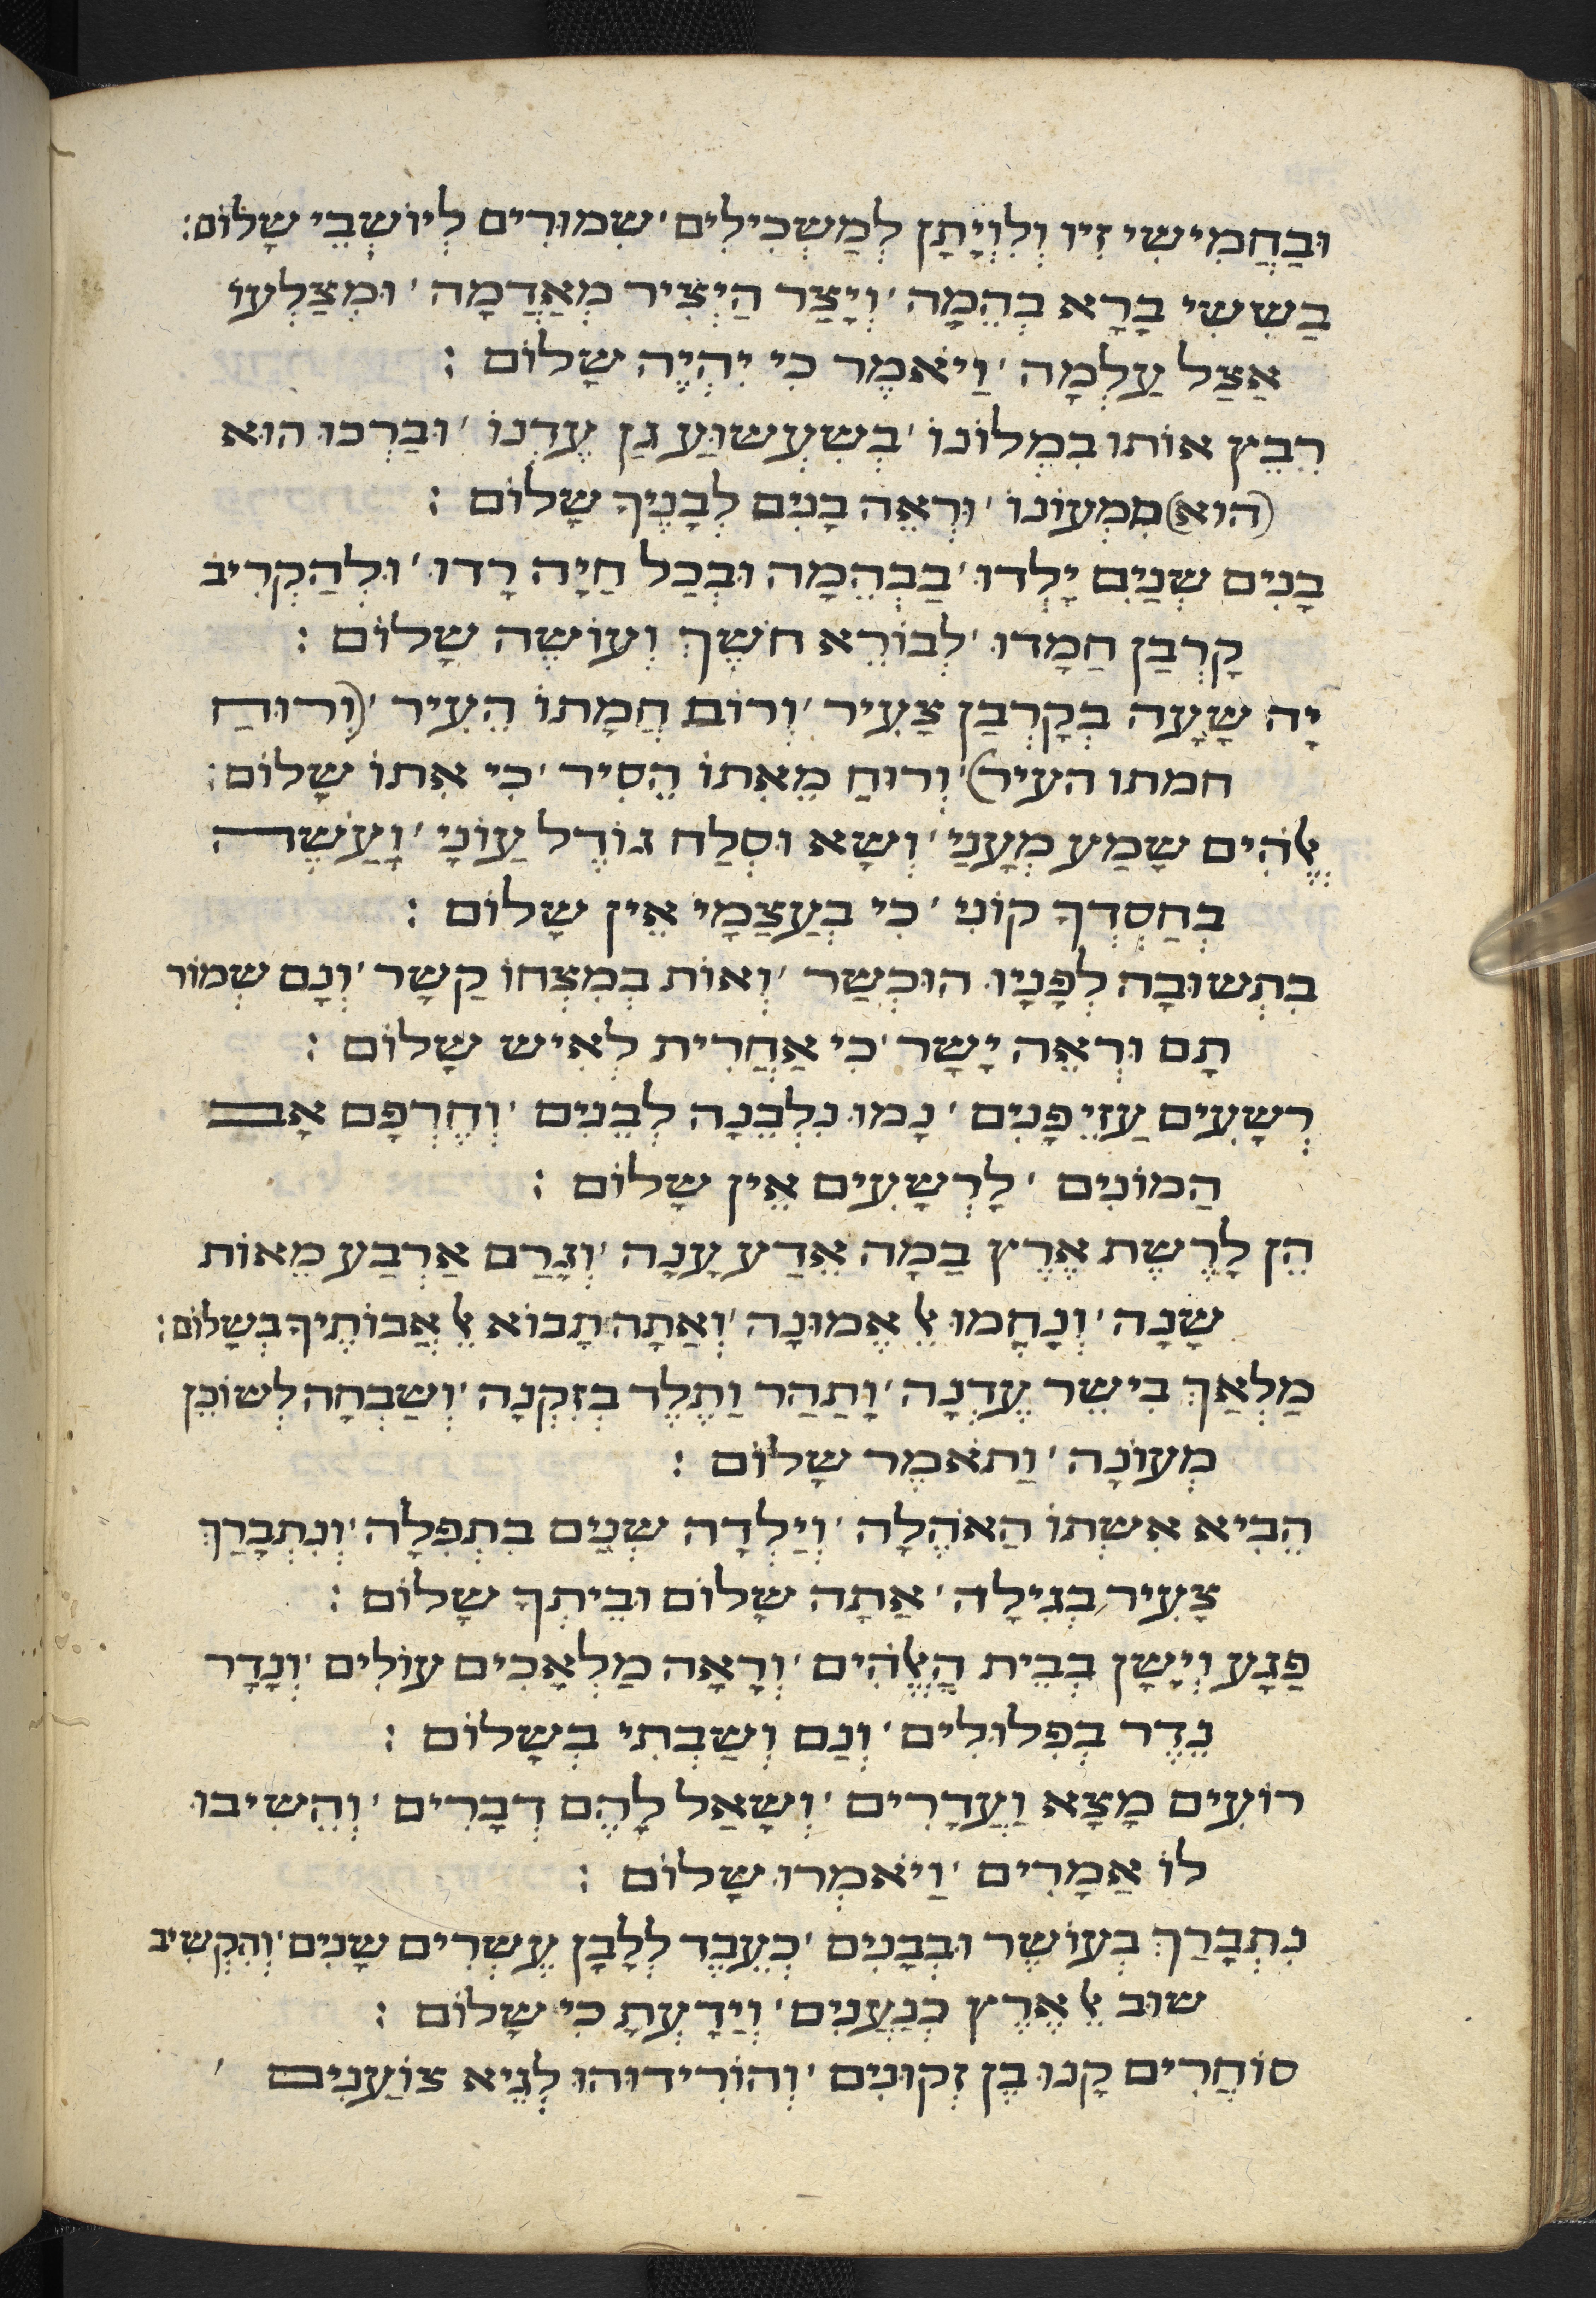 וּבַחֲמִישִׁי זִיו וְלִוְיָתָן לְמַשְׂכִּילִים׳ שִׁמּוּרִים לְיוֹשְׁבֵי שָׁלוֹם׃
בַּשִׁשִׁי בָּרָא בְּהֵמָה׳ וְיָצַר הַיְצִיר מְאַדֲמָה׳ וּמְצַלְעוֹ
אַצַל עַלְמָה׳ וַיֹאמֶר כִּי יִהְיֶה שָׁלוֹם׃
רִבֵּץ אוֹתוֹ בִּמְלוֹנוֹ׳ בְּשִׁעְשׁוּעַ גַן עֶדְנוֹ׳ וּבַרְכוּ הוּא
(הוא) מִמְעוֹנוֹ׳ וּרְאֵה בָנִים לְבָנֶיךָ שָׁלוֹם׃
בָּנִים שְׁנַיִם יָלְדוּ׳ בַּבְּהֵמָה וּבְכַל חַיָה רָדוּ׳ וּלְהַקְרִיב
קָרְבַּן חַמָדוּ׳ לְבוֹרֵא חֹשֶׁךְ וְעוֹשֶׂה שָׁלוֹם׃
יָהּ שָׁעָה בְּקָרְבַּן צָעִיר׳ וְרוֹם חֲמָתוֹ הֵעִיר׳ (וְרוּחַ
חמתו העיר)׳ וְרוּחַ מֵאִתוֹ הֵסִיר׳ כִּי אִתוֹ שָׁלוֹם׃
אֱלֹהִים שָׁמַע מְעָנַי׳ וְשָׂא וּסְלַח גוֹדֶל עַוֹנָי׳ וַעֲשֶׂה
בְּחַסְדְךָ קוֹנִי׳ כִּי בְּעַצְמָי אֵין שָׁלוֹם׃
בִּתְשׁוּבָה לְפָנָיו הוּכְשַׁר׳ וְאוֹת בְּמִצְחוֹ קַשָׁר׳ וְנָם שְׁמוֹר
תָם וּרְאֵה יָשָׁר׳ כִּי אַחֲרִית לְאִישׁ שָׁלוֹם׃
רְשָׁעִים עַזֵי פָּנִים׳ נָמוּ נִלְבְּנָה לְבֵנִים׳ וְחֶרְפָּם אָב
הַמוֹנִים׳ לָרְשָׁעִים אֵין שָׁלוֹם׃
הֵן לָרֶשֶׁת אֶרֶץ בַּמָה אֵדַע עָנָה׳ וְגָרַם אַרְבַּע מֵאוֹת
שָׁנָה׳ וְנִחֲמוֹ אֵל אֱמוּנָה׳ וְאַתָה תָּבוֹא אֶל אֲבוֹתֶיךָ בְּשָׁלוֹם׃
מַלְאַךְ בִּישֵׂר עֶדְנָה׳ וַתַהַר וַתֵלֶד בְּזִקְנָה׳ וְשַׁבְּחָה לְשׁוֹכֵן
מְעוֹנָה׳ וַתֹאמֶר שָׁלוֹם׃
הֵבִיא אִשְׁתוֹ הָאֹהֱלָה׳ וְיַלְדָה שְׁנַיִם בִּתְפִלָה׳ וְנִתְבָּרַךְ
צָעִיר בְּגִילָה׳ אַתָה שָׁלוֹם וּבֵיתְךָ שָׁלוֹם׃
פַּגָע וְיָשַׁן בְּבֵית הָאֱלֹהִים׳ וְרָאָה מַלְאָכִים עוֹלִים׳ וְנָדַר
נֵדֶר בְּפִלוּלִים׳ וְנַם וְשַׁבְתִי בְּשָׁלוֹם׃
רוֹעִים מָצָא וַעֲדָרִים׳ וְשָׁאַל לָהֶם דְבָרִים׳ וְהֵשִׁיבוּ
לוֹ אַמָרִים׳ וַיֹאמְרוּ שָׁלוֹם׃
נִתְבָּרַךְ בְּעוֹשֶׁר וּבְבָנִים׳ כְּעֶבֶד לְלָבָן עֶשְׂרִים שָׁנִים׳ וְהִקְשִׁיב
שׁוּב אֶל אֶרֶץ כְּנַעֲנִים׳ וְיָדַעְתָ כִּי שָׁלוֹם׃
סוֹחֲרִים קָנוּ בֶּן זְקוּנִים׳ וְהוֹרִידוּהוּ לְגֵיא צוֹעֲנִים׳